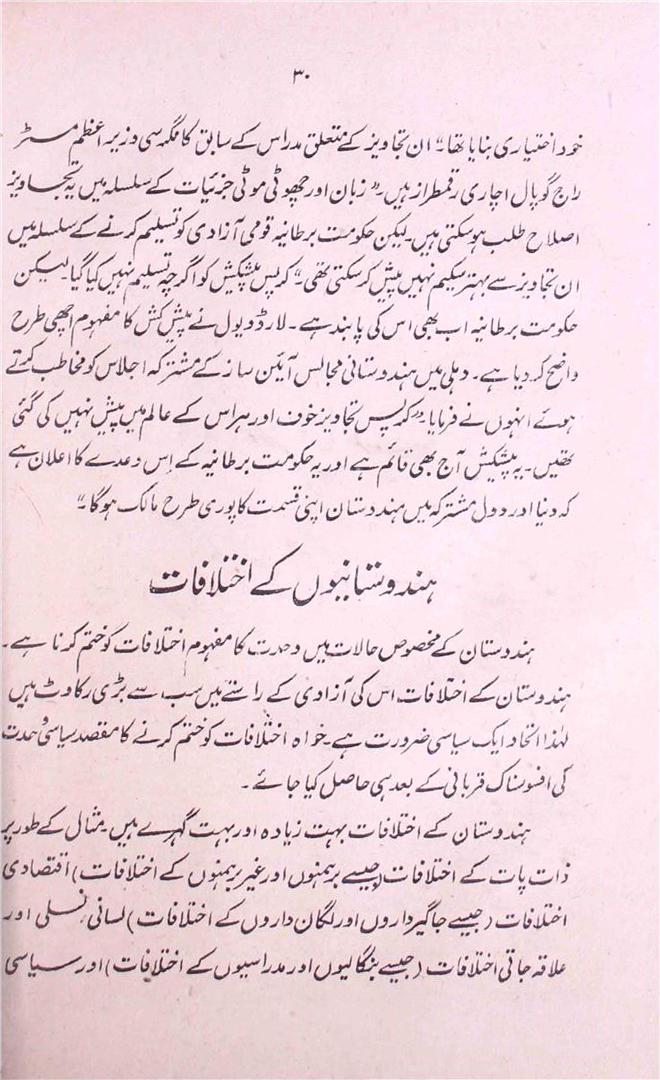 ۳۰
خود اختیاری بنایا تھا۔" ان تجاویز کے متعلق مدراس کے سابق کانگرسی وزیر اعظم مسٹر
راج گوپال اچاری رقمطراز ہیں۔ "زبان اور چھوٹی موٹی جزئیات کے سلسلہ میں یہ تجاویز
اصلاح طلب ہو سکتی ہیں۔ لیکن حکومت برطانیہ قومی آزادی کو تسلیم کرنے کے سلسلہ میں
ان تجاویز سے بہتر سکیم نہیں پیش کر سکتی تھی۔" کرپس پیشکش کو اگرچہ تسلیم نہیں کیا گیا۔ لیکن
حکومت برطانیہ اب بھی اس کی پابند ہے۔ لارڈ ویول نے پیش کش کا مفہوم اچھی طرح
واضح کر دیا ہے۔ دہلی میں ہندوستانی مجالس آئین ساز کے مشترکہ اجلاس کو مخاطب کرتے
ہوئے انہوں نے فرمایا۔ "کرپس تجاویز خوف اور ہراس کے عالم میں پیش نہیں کی گئی
تھیں۔ یہ پیشکش آج بھی قائم ہے اور یہ حکومت برطانیہ کے اس وعدے کا اعلان ہے
کہ دنیا اور دول مشترکہ میں ہندوستان اپنی قسمت کا پوری طرح مالک ہوگا۔"
ہندوستانیوں کے اختلافات
ہندوستان کے مخصوص حالات میں وحدت کا مفہوم اختلافات کو ختم کرنا ہے۔
ہندوستان کے اختلافات اس کی آزادی کے راستے میں سب سے بڑی رکاوٹ ہیں
لہٰذا اتحاد ایک سیاسی ضرورت ہے۔ خواہ اختلافات کو ختم کرنے کا مقصد سیاسی وحدت
کی افسوسناک قربانی کے بعد ہی حاصل کیا جائے۔
ہندوستان کے اختلافات بہت زیادہ اور بہت گہرے ہیں۔ مثال کے طور پر
ذات پات کے اختلافات (جیسے برہمنوں اور غیر برہمنوں کے اختلافات) اقتصادی
اختلافات (جیسے جاگیرداروں اور لگان داروں کے اختلافات) لسانی، نسلی اور
علاقہ جاتی اختلافات (جیسے بنگالیوں اور مدراسیوں کے اختلافات) اور سیاسی